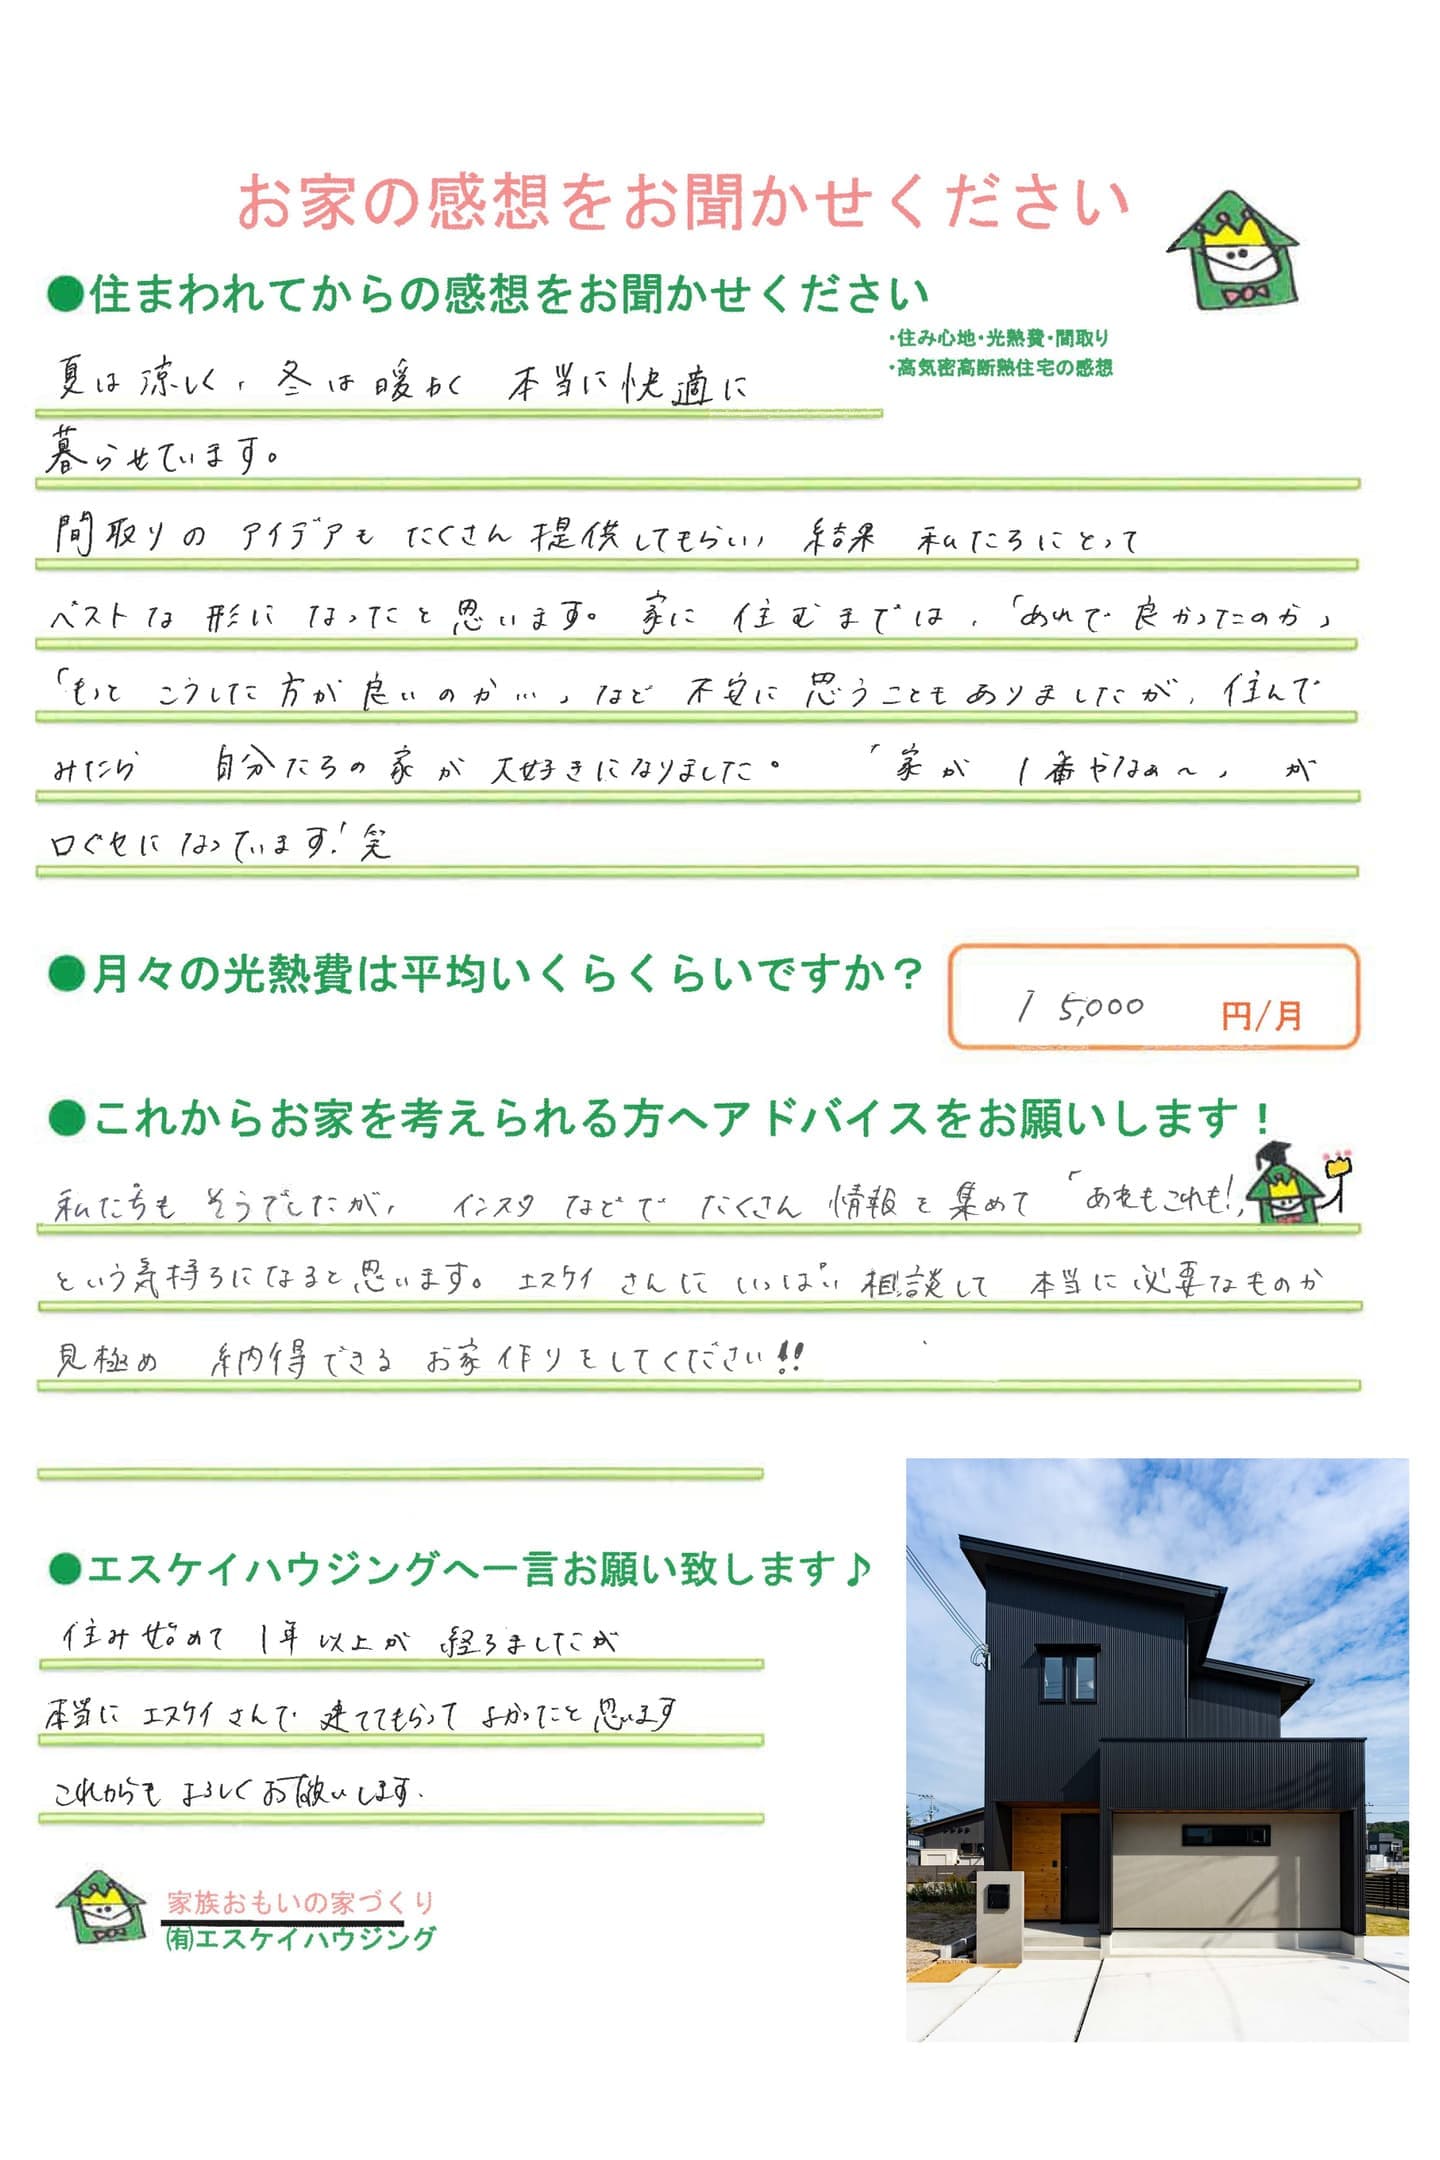 お家の感想をお聞かせください
●住まわれてからの感想をお聞かせください
・住み心地・光熱費・間取り
・高気密高断熱住宅の感想
夏は涼しく、冬は暖かく 本当に快適に
暮らせています。
間取りの アイデアも たくさん 提供してもらい、 結果 私たちにとって
ベストな 形に なったと 思います。 家に 住むまでは、「あれで 良かったのか」
「もっと こうした 方が 良いのか…」など 不安に 思うこともありましたが、住んで
みたら 自分たちの 家が 大好きになりました。 「家が 1番やなぁ〜」 が
口ぐせに なっています!笑
●月々の光熱費は平均いくらくらいですか?
15,000 円/月
●これからお家を考えられる方へアドバイスをお願いします!
私たちも そうでしたが、 インスタ などで たくさん 情報を 集めて 「あれもこれも!」
という気持ちになると思います。 エスケイ さんに いっぱい 相談して 本当に 必要なものか
見極め 納得できる お家作りをしてください!!
●エスケイハウジングへ一言お願い致します♪
住み始めて 1年以上が 経ちましたが
本当に エスケイさんで 建ててもらって よかったと 思います
これからも よろしく お願いします.
家族おもいの家づくり
㈲エスケイハウジング